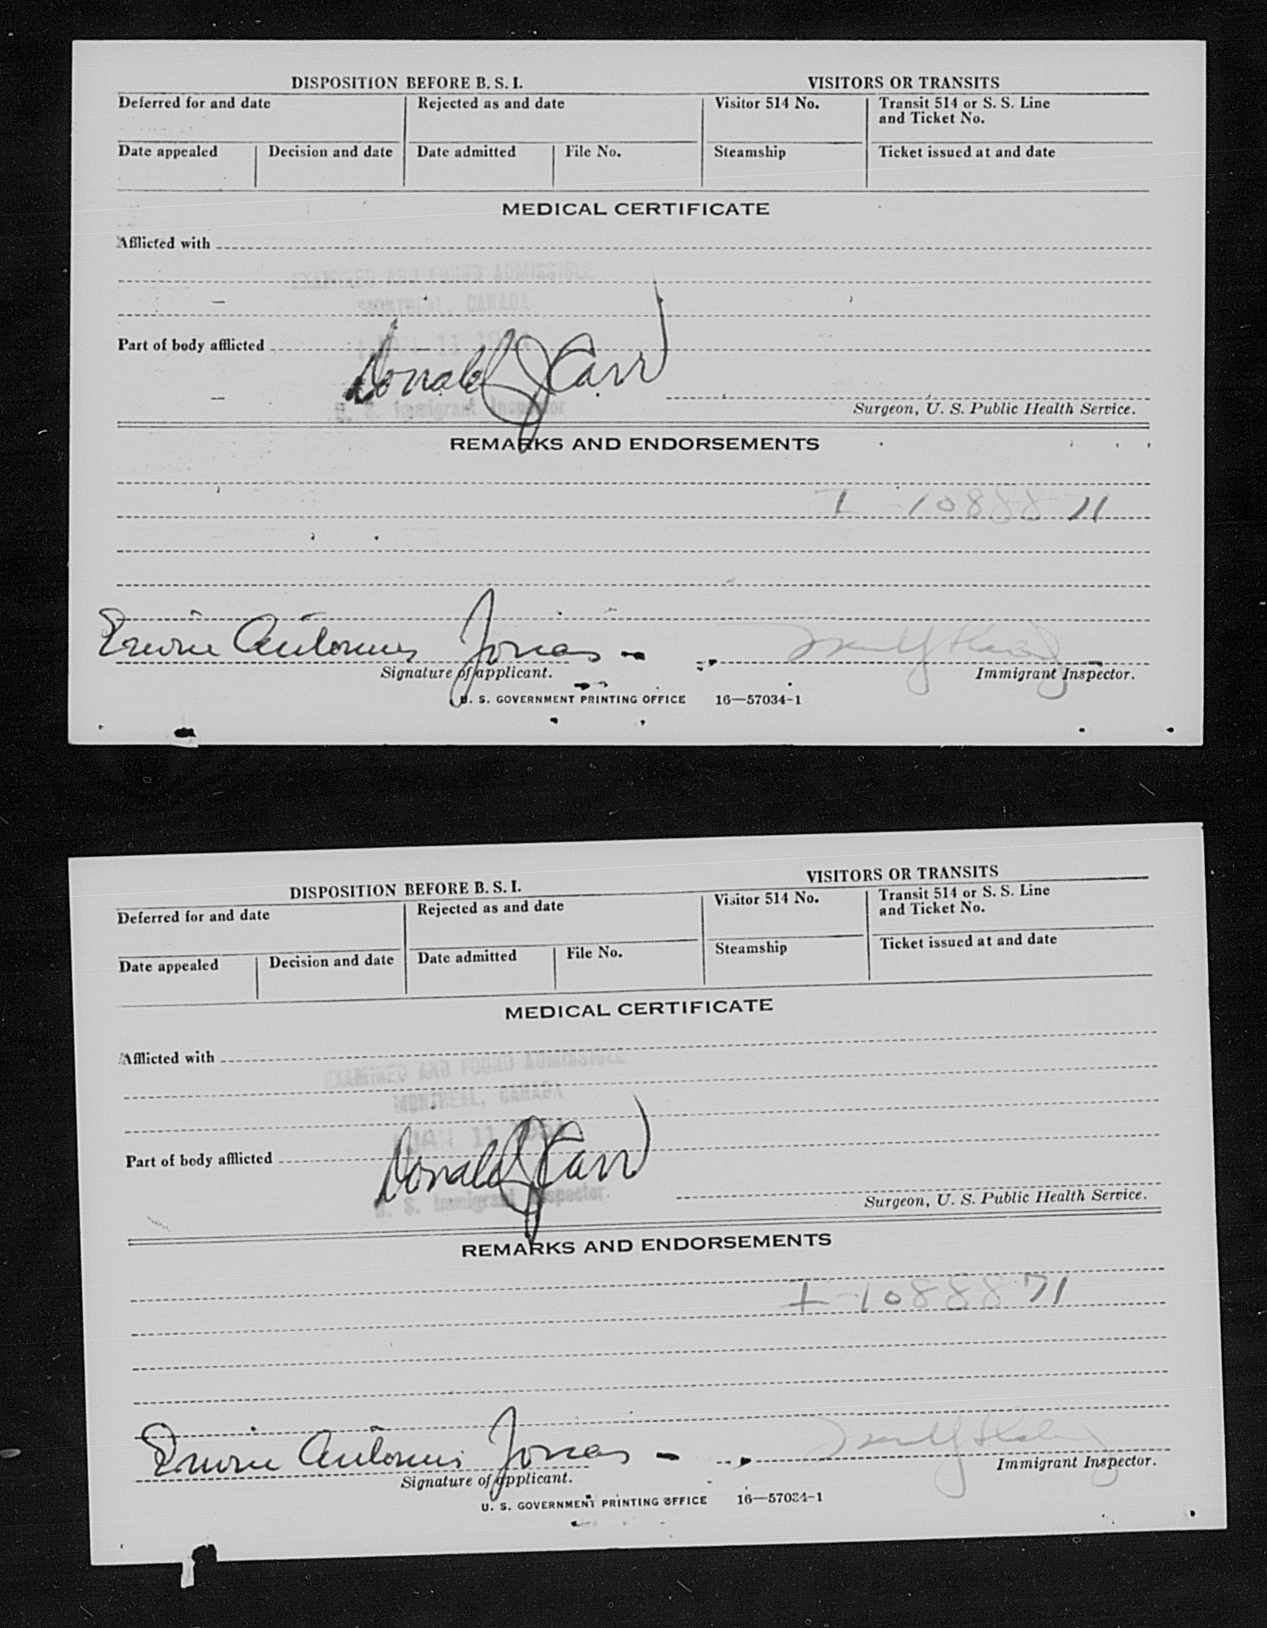 DISPOSITION BEFORE B. S. I. VISITORS OR TRANSITS
Deferred for and date Rejected as and date Visitor 514 No. Transit 514 or S. S. Line
and Ticket No.
Date appealed Decision and date Date admitted File No. Steamship Ticket issued at and date
MEDICAL CERTIFICATE
Afflicted with
EXAMINED AND FOUND ADMISSIBLE
MONTREAL, CANADA
Part of body afflicted 11
Donald J Carr
U. S. Immigrant Inspector
Surgeon, U. S. Public Health Service.
REMARKS AND ENDORSEMENTS
I-1088871
Erwin Antonius Jonas
Signature of applicant. Immigrant Inspector.
U. S. GOVERNMENT PRINTING OFFICE 16—57034-1
DISPOSITION BEFORE B. S. I. VISITORS OR TRANSITS
Deferred for and date Rejected as and date Visitor 514 No. Transit 514 or S. S. Line
and Ticket No.
Date appealed Decision and date Date admitted File No. Steamship Ticket issued at and date
MEDICAL CERTIFICATE
Afflicted with
EXAMINED AND FOUND ADMISSIBLE
MONTREAL, CANADA
JAN 11
Part of body afflicted
Donald J Carr
U. S. Immigrant Inspector.
Surgeon, U. S. Public Health Service.
REMARKS AND ENDORSEMENTS
I-1088871
Erwin Antonius Jonas
Signature of applicant. Immigrant Inspector.
U. S. GOVERNMENT PRINTING OFFICE 16—57034-1